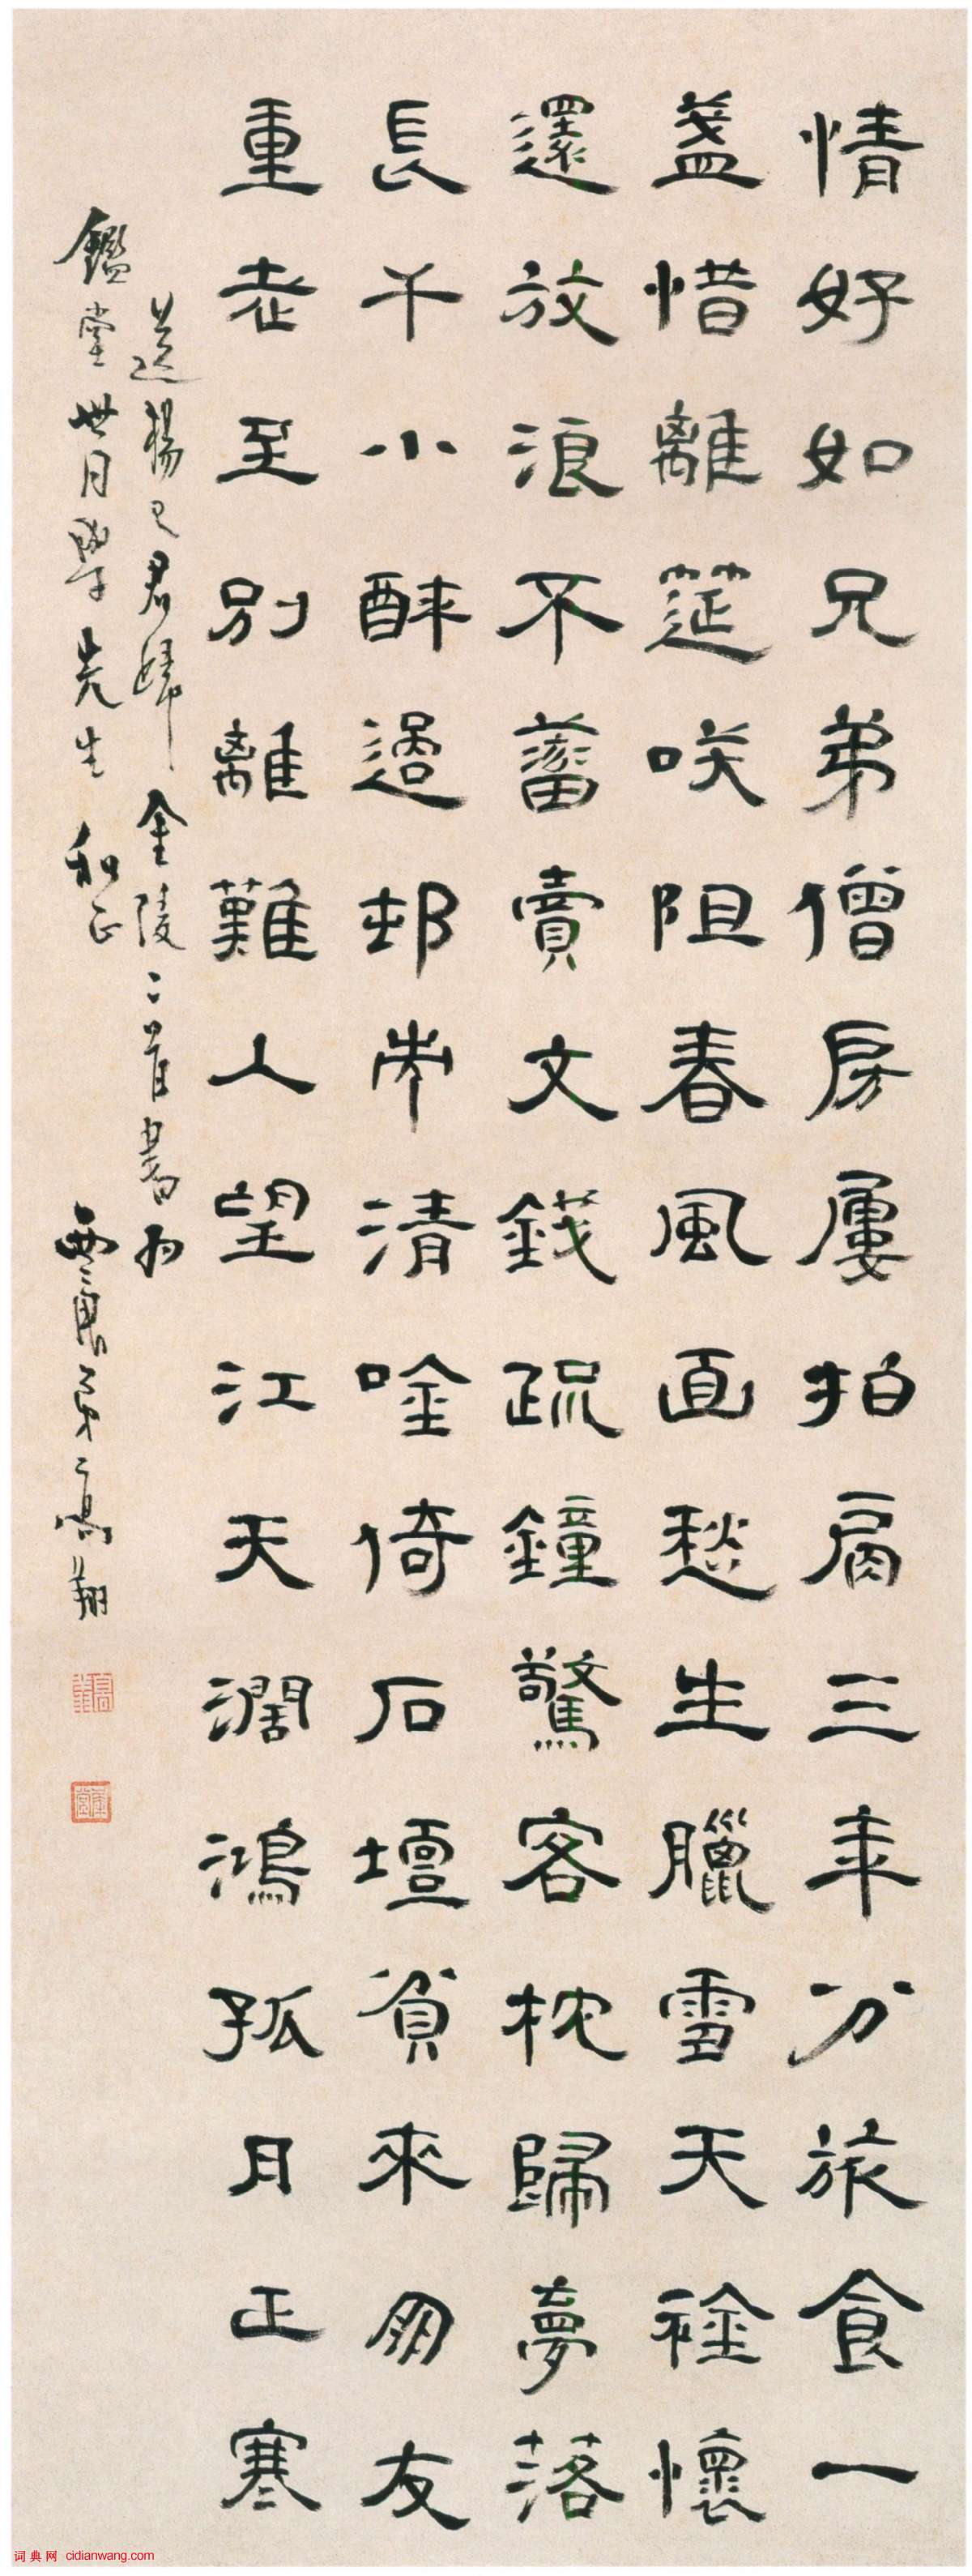 情好如兄弟僧房屢拍肩三年分旅食一
盞惜離筵咲阻春風面愁生臘雪天襟懷
還放浪不蓄賣文錢疏鐘驚客枕歸夢落
長干小醉過邨市清唫倚石壇貧來朋友
重老至別離難人望江天濶鴻孤月正寒
送楊已君歸金陵二首書為
鑑堂世同學先生和正西唐弟高翔
词典网 cidianwang.com